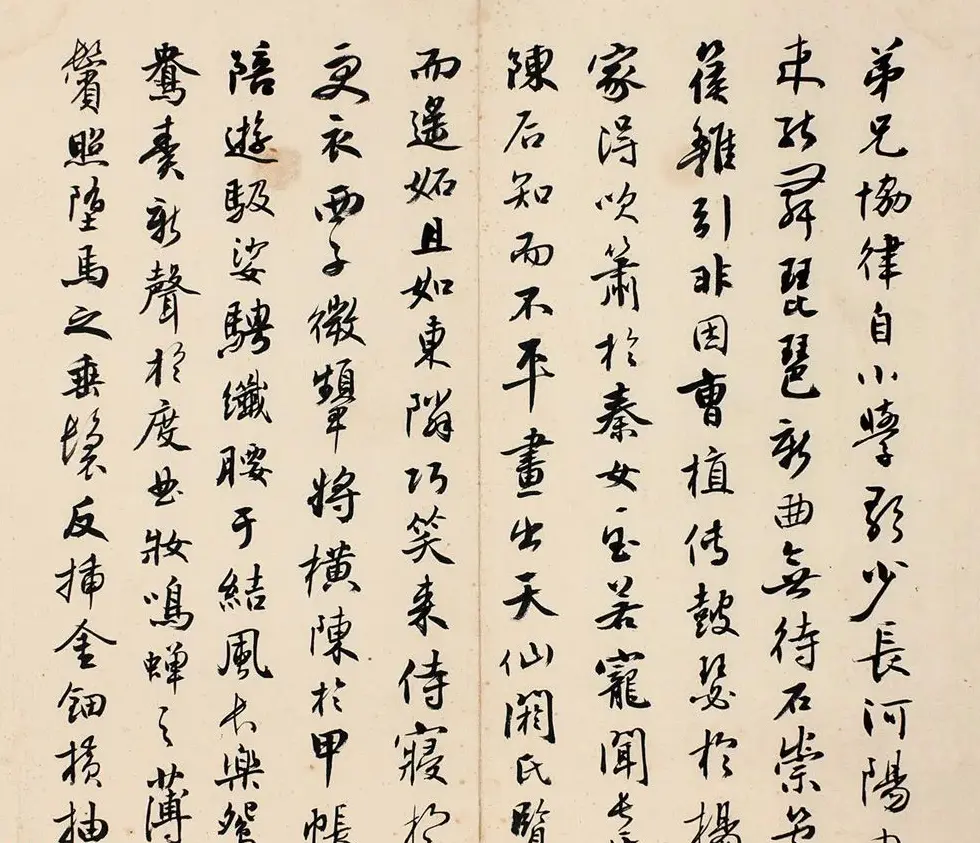 弟兄協律自小學歌少長河陽
来能舞琵琶新曲無待石崇
篌雜引非因曹植傳鼓瑟於楊
家得吹簫於秦女至若寵聞長
陳后知而不平畫出天仙閼氏覽
而遙妬且如東隣巧笑来侍寢於
更衣西子微顰將橫陳於甲帳
陪遊馺娑騁纖腰于結風長樂鴛
鴦奏新聲於度曲妝鳴蟬之薄
鬢照墮馬之垂鬟反插金鈿橫抽